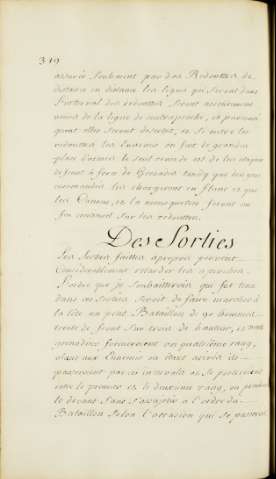 319
assurée seulement par des Redouttes de
distance en distance les lignes qui seront dans
l'interval des redouttes seront
de la ligne de contraproche, et
quant elles seront
redouttes les Ennemis en font de grandes
place d'armes le seul remede est de les
de front à force de Grenades tandis que
les chargeront en flanc et que
les Canons, et la mousqueterie feront un
feu continuel sur les redouttes.
Des Sorties
Les Sorties faittes apropos peuvent
Considerablement retarder les aproches.
l'ordre que je Souhaitterois qui fut tenu
dans ces Sorties seroit de faire marcher à
la tête un petit Bataillon de 90 hommes
trente de front sur trois de hauteur,
grenadiers formeroient un quatrième rang,
aux Ennemis
passeroient par ces intervals et se posteroient
entre le premier et le deuxieme rang, ou
le devant Sans l'ordre du
Bataillon Selon l'occasion qui se